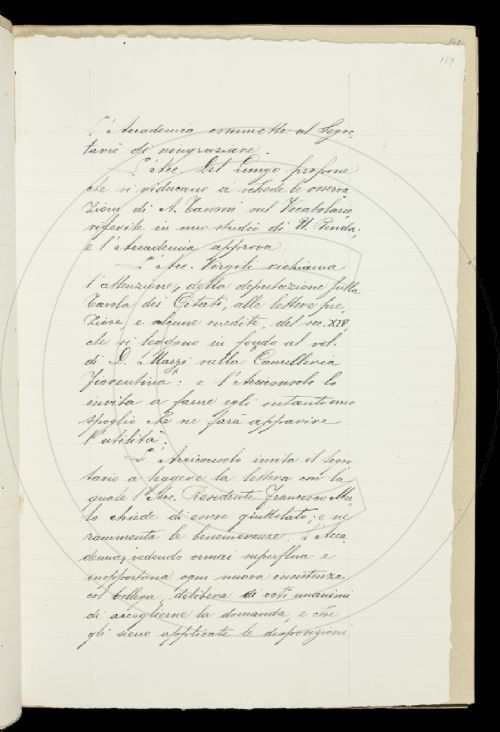 159
L'Accademia commette al Segre
tario di ringraziare.
L'Acc. Del Lungo propone
che si riducano a schede le osserva
zioni di A. Tassoni sul Vocabolario,
riferite in uno studio di U. Renda;
e l'Accademia approva.
L'Acc. Virgili richiama
l'attenzione, della deputazione sulla
Tavola dei Citati, alle lettere pre
ziose, e alcune inedite, del sec. XIV
che si leggono in fondo al vol.
di D. Marzi sulla Cancelleria
fiorentina: e l'Arciconsolo lo
invita a farne egli intanto uno
spoglio che ne farà apparire
l'utilità.
L'Arciconsolo invita il Segre
tario a leggere la lettera con la
quale l'Acc. Residente Francesco
chiede di essere giubilato; e ne
rammenta le benemerenze. L'Acca
demia, vedendo ormai superflua e
inopportuna ogni nuova insistenza
col Collega, delibera a voti unanimi
di accoglierne la domanda, e che
gli sieno applicate le disposizioni